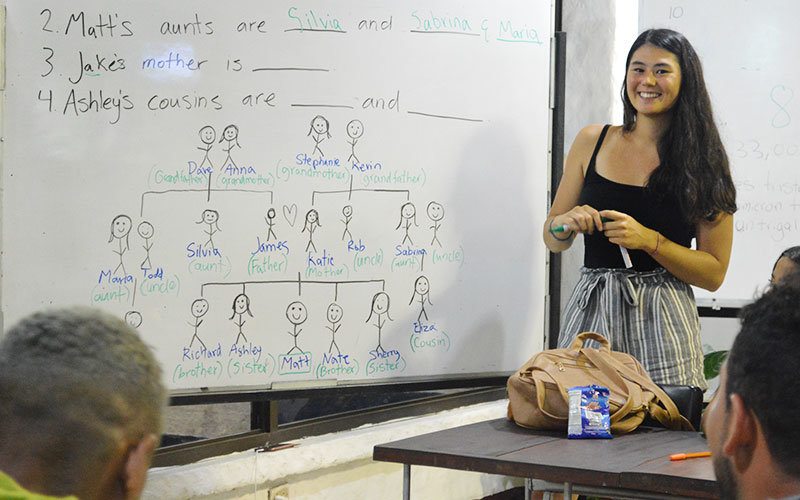 2. Matt's aunts are Silvia and Sabrina & Maria
3. Jake's mother is
4. Ashley's cousins are and
Dave Anna Stephanie Kevin
(Grandfather) (grandmother) (grandmother) (grandfather)
Maria Todd Silvia James Katie Rob Sabrina
(aunt) (uncle) (aunt) (Father) (Mother) (uncle) (aunt) (uncle)
Richard Ashley Matt Nate Sherry Eliza
(brother) (sister) (Brother) (Sister) (Cousin)
10
8
33,00